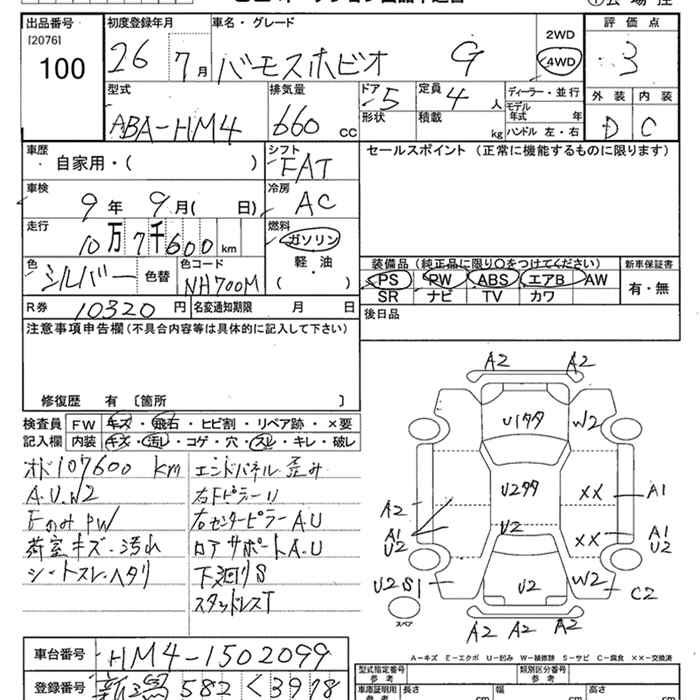 出品番号 初度登録年月 車名・グレード 評価点
[2076] 100 26 7月 バモスホビオ G 2WD 4WD 3
型式 排気量 ドア 定員 ディーラー・並行 外装 内装
ABA-HM4 660 CC 5 4人 モデル年式 年 D C
形状 積載 kg ハンドル 左・右
車歴 シフト セールスポイント (正常に機能するものに限ります)
自家用・( ) FAT
車検 冷房
9年 9月( 日) AC
走行 燃料
10万7千600 km ガソリン
軽・油
( )
色 色コード 装備品 (純正品に限り〇をつけてください) 新車保証書
シルバー 色替 NH700M PS PW ABS エアB AW 有・無
SR ナビ TV カワ
R券 10320 円 名変通知期限 月 日 後日品
注意事項申告欄 (不具合内容等は具体的に記入して下さい)
修復歴 有 〔箇所 〕
検査員 FW キズ・飛石・ヒビ割・リペア跡・×要
記入欄 内装 キズ・汚し・コゲ・穴・スレ・キレ・破レ
オド107600 km エンドパネル歪み
A.U.W2 右FピラーU
FのみPW 右センターピラーA.U
荷室キズ・汚れ ロアサポートA.U
シートスレ・ヘタリ 下廻りS
スタッドレスT
A2 A2
U1タタ W2
U2タタ XX A1
A2 A1 U2 U2 XX A1 U2
U2S1 U2 W2 C2
スペア
A2 A2 A2
A-キズ E-エクボ U-凹み W-補修跡 S-サビ C-腐食 XX-交換済
車台番号 HM4-1502099
登録番号 新潟 582 く 3978
型式指定番号 参考 類別区分番号 参考
車庫証明用 参考 長さ cm 幅 cm 高さ cm